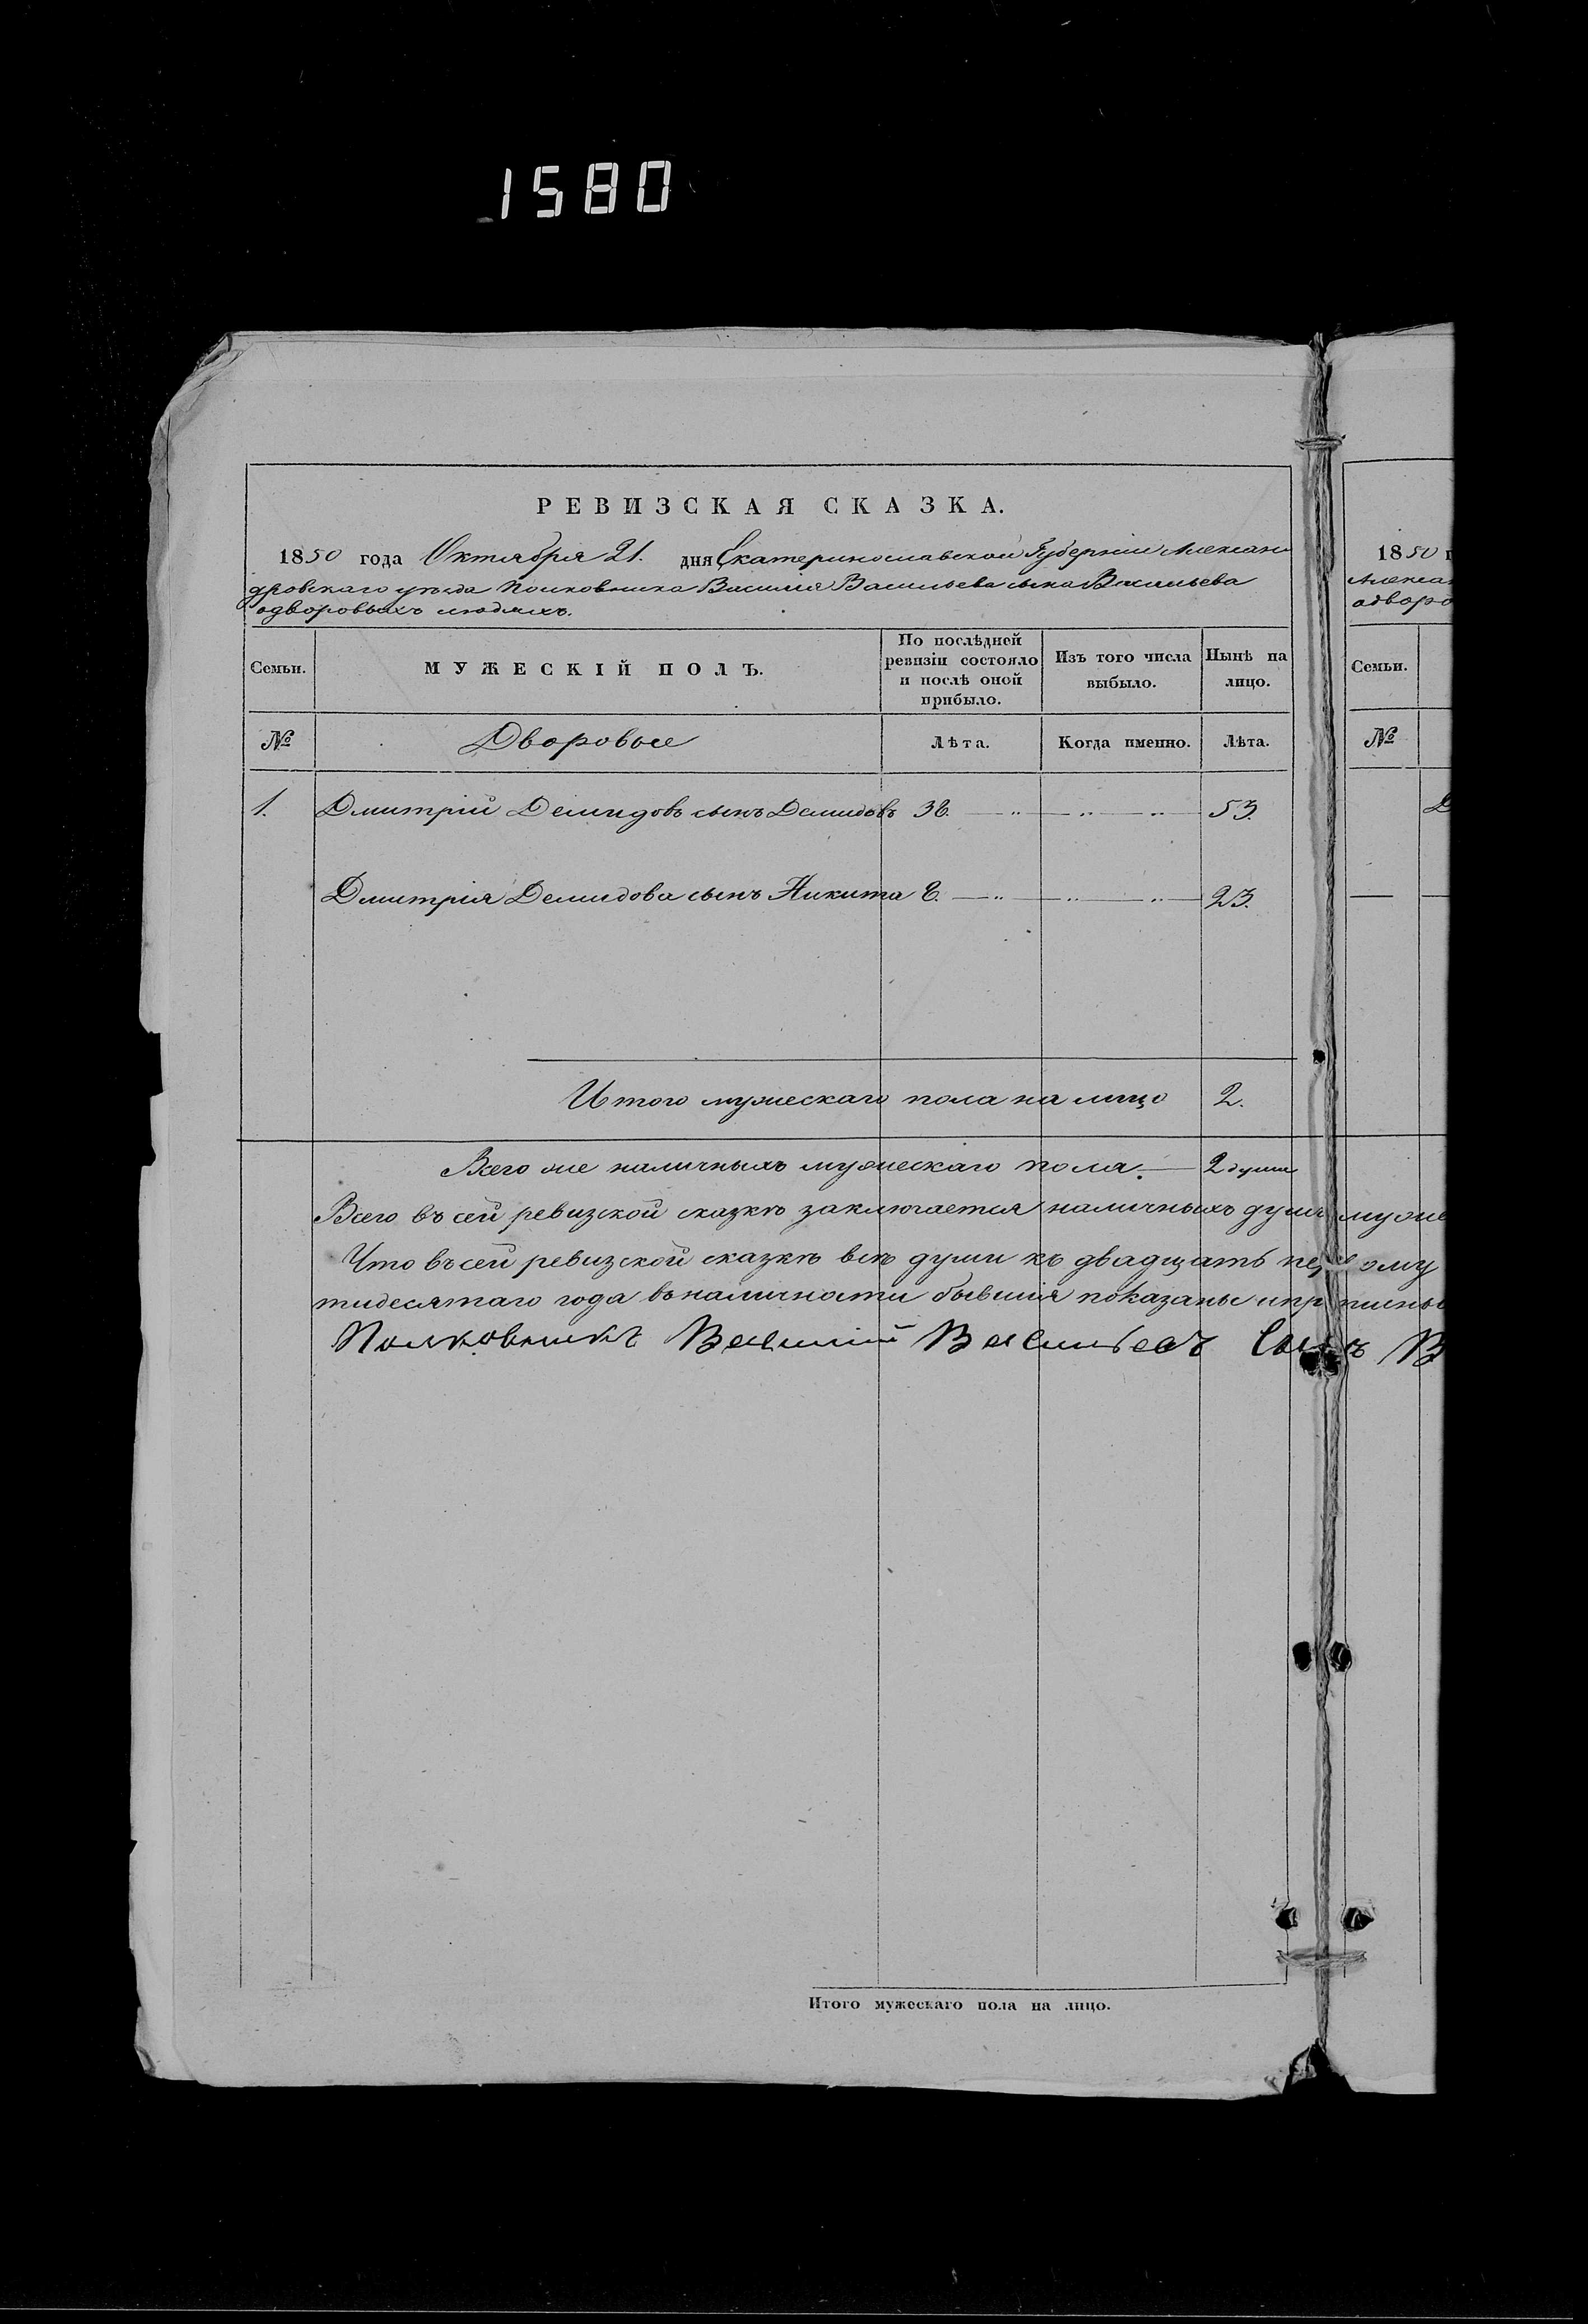 1580
РЕВИЗСКАЯ СКАЗКА.
1850 года Октября 21. дня Екатеринославской Губерніи Алексан
дровскаго уѣзда Полковника Василія Васильева сына Васильева
одворовыхъ людяхъ.
Семьи.
МУЖЕСКІЙ ПОЛЪ.
По послѣдней
ревизіи состояло
и послѣ оной
прибыло.
Изъ того числа
выбыло.
Нынѣ на
лицо.
№ Дворовые Лѣта. Когда именно. Лѣта.
1. Дмитрій Демидовъ сынъ Демидовъ 38. — „ — „ — „ — 53.
Дмитрія Демидова сынъ Никита 8. — „ — „ — „ — 23.
Итого мужескаго пола на лицо 2.
Всего же наличныхъ мужескаго пола. — 2 души
Всего въ сей ревизской сказкѣ заключается наличныхъ душъ муже
Что въ сей ревизской сказкѣ всѣ души къ двадцать первому
тидесятаго года въ наличности бывшія показаны и
Полковникъ Василій Васильевъ Сынъ В
Итого мужескаго пола на лицо.
1850 г
Алексан
одворо
Семьи.
№
Д